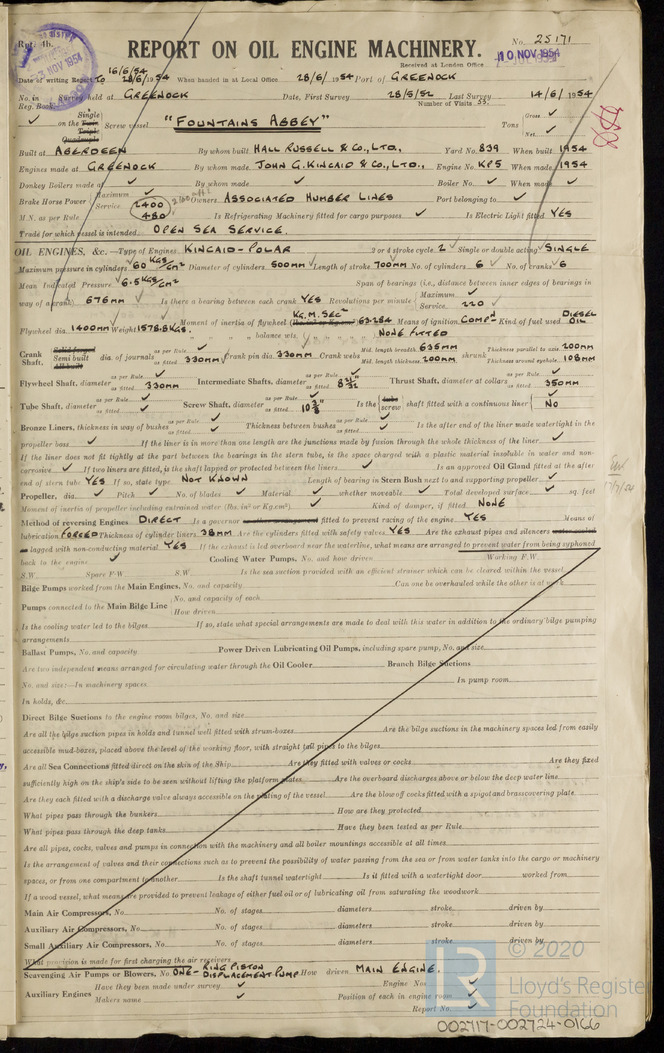 Rpt. 4b.
No. 25171
REPORT ON OIL ENGINE MACHINERY.
Received at London Office
10 NOV 1954
16/6/54
Date of writing Report To 28/6/1954 When handed in at Local Office 28/6/1954 Port of GREENOCK
No. in Survey held at GREENOCK Date, First Survey 28/5/52 Last Survey 14/6/1954
Reg. Book. Number of Visits 53.
✓ on the Single Twin Triple Quadruple Screw vessel "FOUNTAINS ABBEY" Tons Gross ✓ Net ✓
Built at ABERDEEN By whom built HALL RUSSELL & CO., LTD. Yard No. 839 When built 1954
Engines made at GREENOCK By whom made JOHN G. KINCAID & CO., LTD., Engine No. KP5 When made 1954
Donkey Boilers made at ✓ By whom made ✓ Boiler No. ✓ When made ✓
Brake Horse Power Maximum Service 2400 Owners ASSOCIATED HUMBER LINES Port belonging to ✓
M.N. as per Rule 480 Is Refrigerating Machinery fitted for cargo purposes. ✓ Is Electric Light fitted YES
Trade for which vessel is intended. OPEN SEA SERVICE.
OIL ENGINES, &c.—Type of Engines KINCAID-POLAR 2 or 4 stroke cycle 2 ✓ Single or double acting ✓ SINGLE
Maximum pressure in cylinders 60 KGS/CM² Diameter of cylinders 500MM Length of stroke 700MM No. of cylinders 6 ✓ No. of cranks ✓ 6
Mean Indicated Pressure 6.5 KGS/CM² Span of bearings (i.e., distance between inner edges of bearings in
way of a crank) 676MM Is there a bearing between each crank YES Revolutions per minute Maximum ✓ Service 220 ✓
Flywheel dia. 1400MM Weight 1578.8 KGS. Moment of inertia of flywheel KG.M.SEC² 63.284 Means of ignition COMPN Kind of fuel used DIESEL OIL
" " " balance wts. " " " NONE FITTED
Crank Shaft, Solid forged Semi built All built dia. of journals as per Rule ✓ as fitted 330MM Crank pin dia. 330MM Crank webs Mid. length breadth 635MM Mid. length thickness 200MM shrunk Thickness parallel to axis 200MM Thickness around eyehole 108MM
Flywheel Shaft, diameter as per Rule ✓ as fitted 330MM Intermediate Shafts, diameter as per Rule ✓ as fitted Thrust Shaft, diameter at collars as per Rule ✓ as fitted 350MM
Tube Shaft, diameter as per Rule ✓ as fitted ✓ Screw Shaft, diameter as per Rule ✓ as fitted Is the tube screw shaft fitted with a continuous liner ✓ No
Bronze Liners, thickness in way of bushes as per Rule ✓ as fitted ✓ Thickness between bushes as per Rule ✓ as fitted ✓ Is the after end of the liner made watertight in the
propeller boss ✓ If the liner is in more than one length are the junctions made by fusion through the whole thickness of the liner ✓
If the liner does not fit tightly at the part between the bearings in the stern tube, is the space charged with a plastic material insoluble in water and non-
corrosive ✓ If two liners are fitted, is the shaft lapped or protected between the liners ✓ Is an approved Oil Gland fitted at the after
end of stern tube YES If so, state type NOT KNOWN Length of bearing in Stern Bush next to and supporting propeller ✓
Propeller, dia. ✓ Pitch ✓ No. of blades ✓ Material ✓ whether moveable ✓ Total developed surface ✓ sq. feet
Moment of inertia of propeller including entrained water (lbs. in² or Kg.cm²) ✓ Kind of damper, if fitted NONE
Method of reversing Engines DIRECT Is a governor fitted to prevent racing of the engine YES Means of
lubrication FORCED Thickness of cylinder liners 38MM Are the cylinders fitted with safety valves YES Are the exhaust pipes and silencers
lagged with non-conducting material YES If the exhaust is led overboard near the waterline, what means are arranged to prevent water from being syphoned
back to the engine ✓ Cooling Water Pumps, No. and how driven Working F.W.
S.W. Spare F.W. S.W. Is the sea suction provided with an efficient strainer which can be cleared within the vessel
Bilge Pumps worked from the Main Engines, No. and capacity Can one be overhauled while the other is at work
Pumps connected to the Main Bilge Line No. and capacity of each
How driven
Is the cooling water led to the bilges If so, state what special arrangements are made to deal with this water in addition to the ordinary bilge pumping
arrangements
Ballast Pumps, No. and capacity Power Driven Lubricating Oil Pumps, including spare pump, No. and size
Are two independent means arranged for circulating water through the Oil Cooler Branch Bilge Suctions
No. and size:—In machinery spaces In pump room
In holds, &c.
Direct Bilge Suctions to the engine room bilges, No. and size
Are all the bilge suction pipes in holds and tunnel well fitted with strum-boxes Are the bilge suctions in the machinery spaces led from easily
accessible mud-boxes, placed above the level of the working floor, with straight tail pipes to the bilges
Are all Sea Connections fitted direct on the skin of the Ship Are they fitted with valves or cocks Are they fixed
sufficiently high on the ship's side to be seen without lifting the platform plates Are the overboard discharges above or below the deep water line
Are they each fitted with a discharge valve always accessible on the plating of the vessel Are the blow off cocks fitted with a spigot and brass covering plate
What pipes pass through the bunkers How are they protected
What pipes pass through the deep tanks Have they been tested as per Rule
Are all pipes, cocks, valves and pumps in connection with the machinery and all boiler mountings accessible at all times
Is the arrangement of valves and their connections such as to prevent the possibility of water passing from the sea or from water tanks into the cargo or machinery
spaces, or from one compartment to another Is the shaft tunnel watertight Is it fitted with a watertight door worked from
If a wood vessel, what means are provided to prevent leakage of either fuel oil or of lubricating oil from saturating the woodwork
Main Air Compressors, No. No. of stages diameters stroke driven by
Auxiliary Air Compressors, No. No. of stages diameters stroke driven by
Small Auxiliary Air Compressors, No. No. of stages diameters stroke driven by
What provision is made for first charging the air receivers
Scavenging Air Pumps or Blowers, No ONE - RING PISTON DISPLACEMENT PUMP How driven MAIN ENGINE.
Auxiliary Engines Have they been made under survey ✓ Engine Nos ✓
Makers name ✓ Position of each in engine room ✓
Report No. ✓
© 2020
LR
Lloyd's Register
Foundation
002717-002724-0166